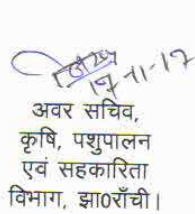 17-11-17
अवर सचिव,
कृषि, पशुपालन
एवं सहकारिता
विभाग, झा0राँची।